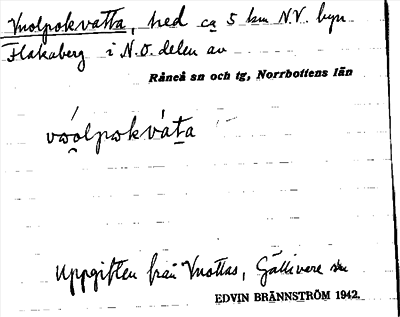 Vuolpokvatta, hed ca 5 km N.V. byn
Flakaberg i N.O. delen av
Råneå sn och tg, Norrbottens län
vu̯ólpokvát̯a
Uppgiften från Vuottas, Gällivare sn
EDVIN BRÄNNSTRÖM 1942.